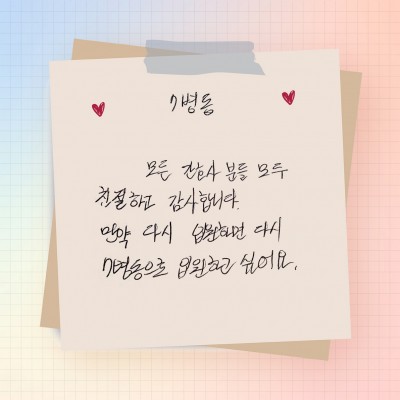 7병동
모든 간호사 분들 모두
친절하고 감사합니다.
만약 다시 입원하면 다시
7병동으로 입원하고 싶어요.